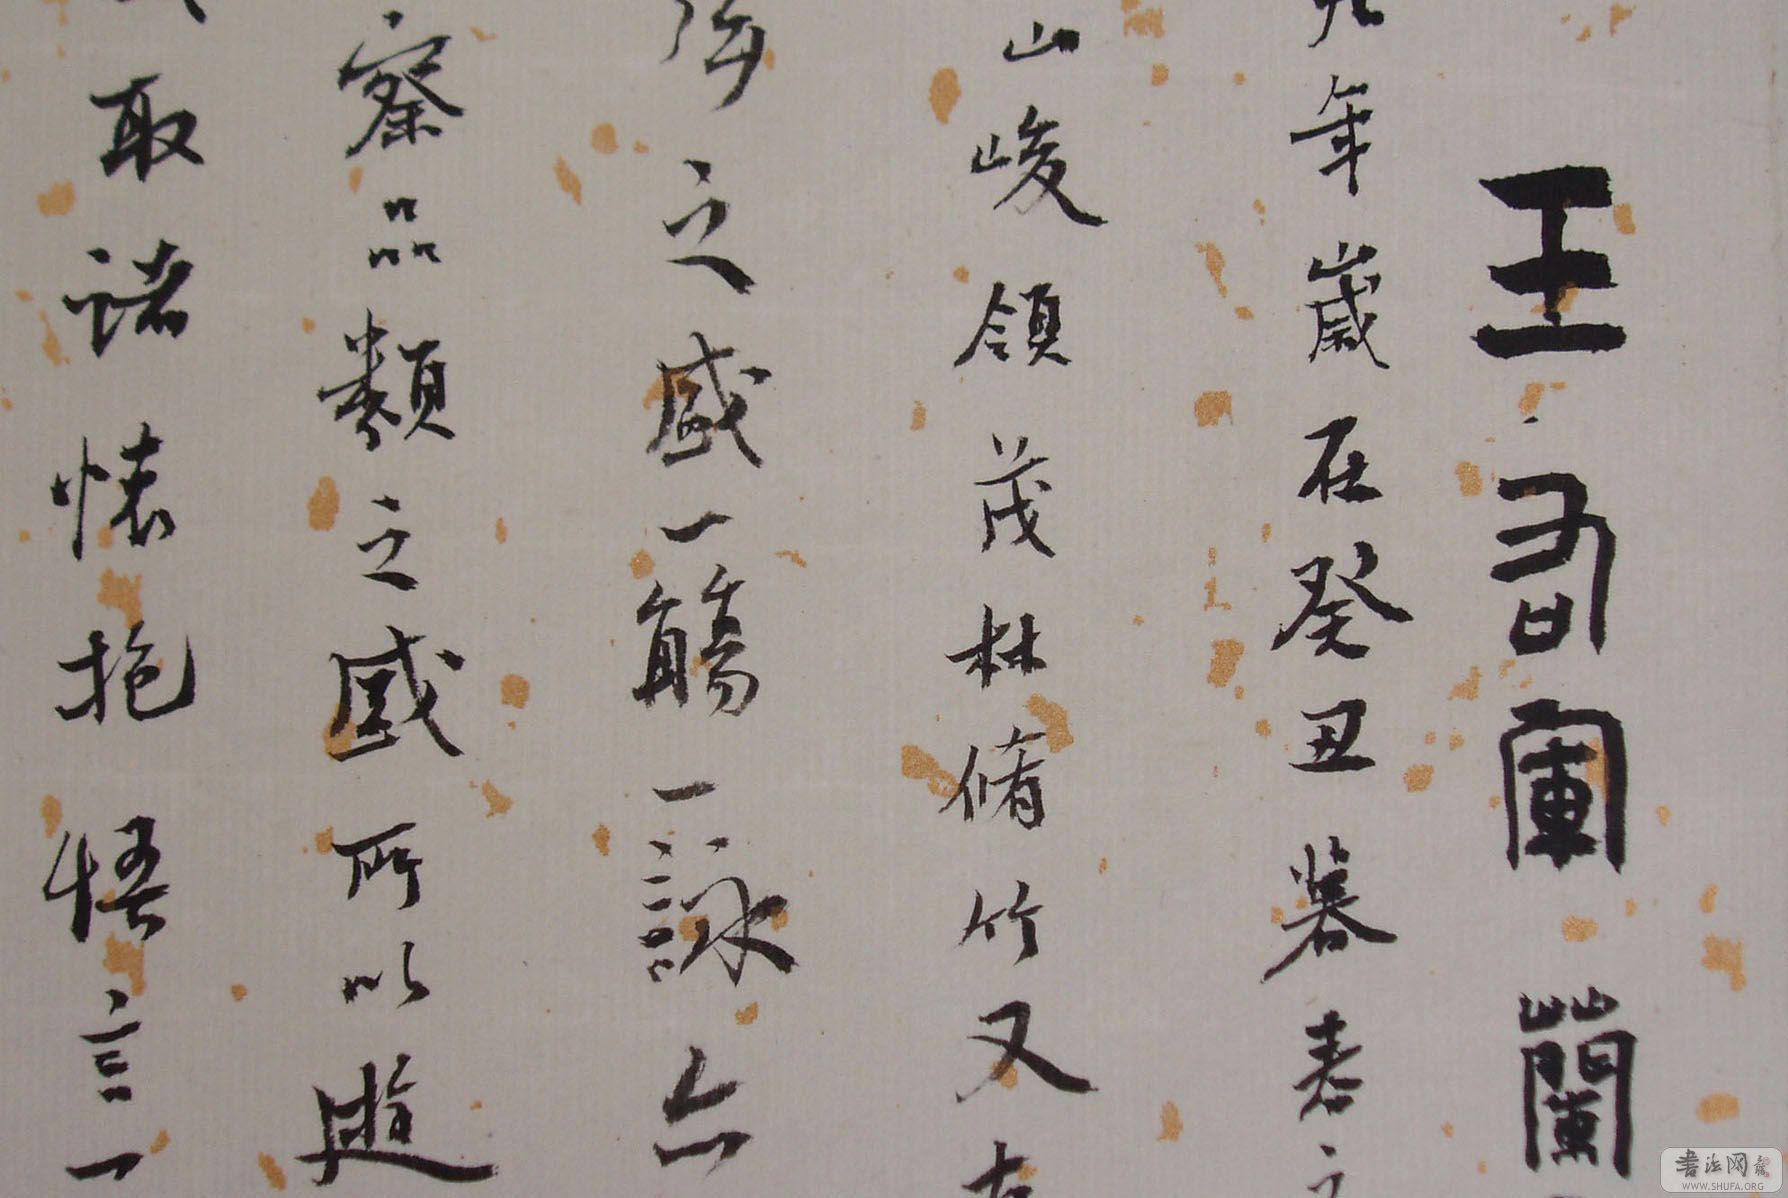 王右軍蘭
九年歲在癸丑暮春之
山峻領茂林脩竹又
之盛一觴一詠亦
察品類之盛所以遊
取諸懷抱悟言一
書法网
WWW.SHUFA.ORG